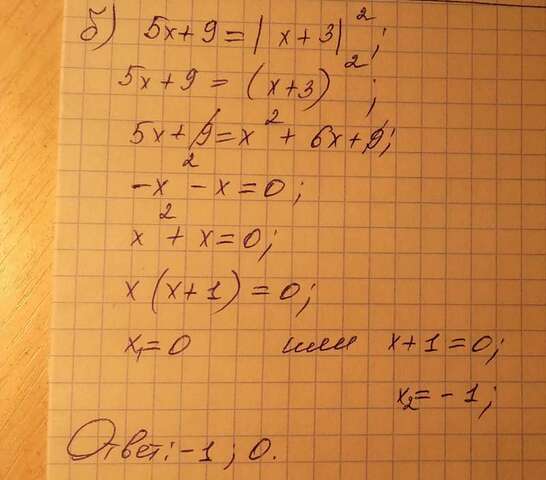 б) 5x+9=|x+3|²;
5x+9=(x+3)²;
5x+9=x²+6x+9;
-x²-x=0;
x²+x=0;
x(x+1)=0;
x₁=0 или x+1=0;
x₂=-1;
Ответ: -1; 0.